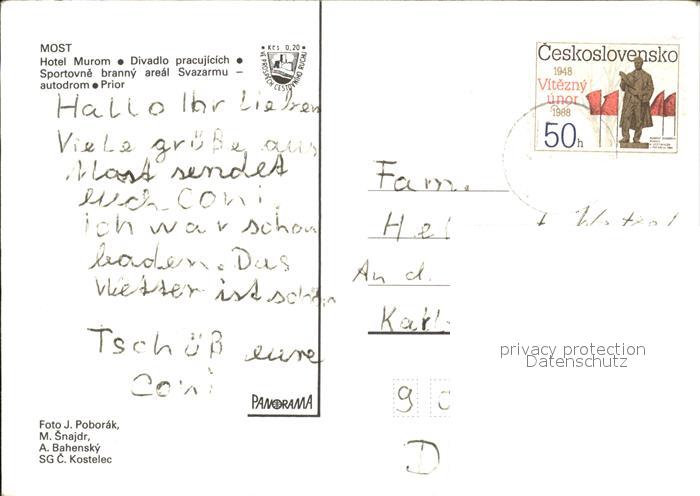 MOST
Hotel Murom ● Divadlo pracujících ●
Sportovně branný areál Svazarmu –
autodrom ● Prior
Kčs 0,20
VE PROSPĚCH CESTOVNÍHO RUCHU
Hallo Ihr lieben
Viele grüße aus
Most sendet
euch Coni.
ich war schon
baden. Das
Wetter ist schön
Tschüß eure
Coni
PANORAMA
Foto J. Poborák,
M. Šnajdr,
A. Bahenský
SG Č. Kostelec
Československo
1948
Vítězný
únor
1988
50h
Fam.
An d.
9
D
privacy protection
Datenschutz